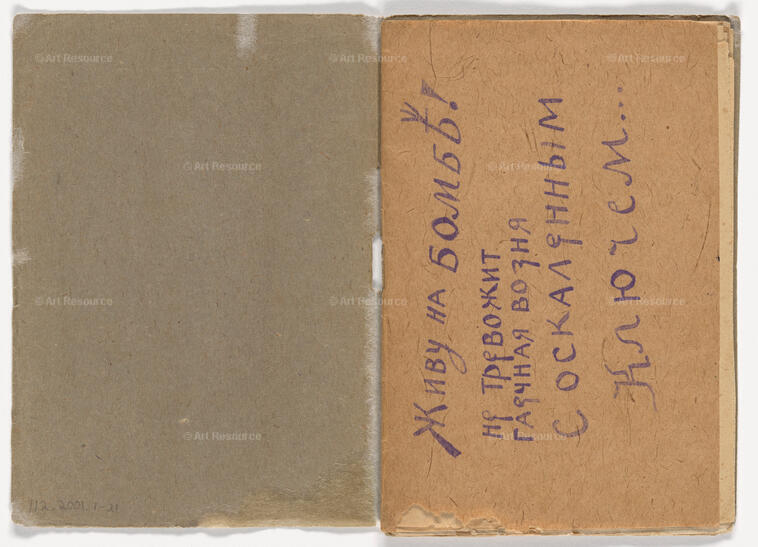 Живу на БОМБѢ!
не ТРЕВОЖИТ
гаечная возня
С ОСКАЛеННЫМ
Ключем...
112.2001.1-21
© Art Resource
© Art Resource
© Art Resource
© Art Resource
© Art Resource
© Art Resource
© Art Resource
© Art Resource
© Art Resource
© Art Resource